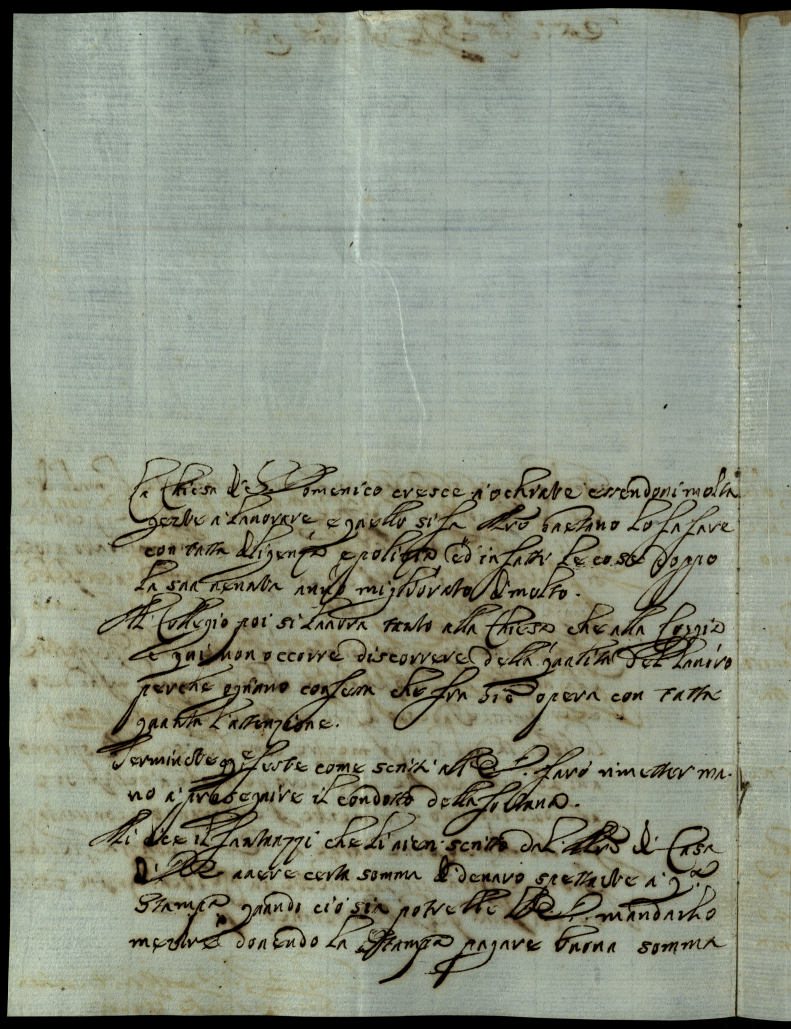 La Chiesa di S. Domenico cresce a ochiate essendoui molta
gente a lauorare e quello si fa Mro Gaetano lo fa fare
con tutta diligenza e polizia ed in fatti le cose doppo
la sua uenuta anno migliorato di molto.
Al Collegio poi si lauora tanto alla Chiesa che alla Loggia
e qui non occorre discorrere della qualità del lauoro
perche ognuno confessa che fra Gio opera con tutta
quanta l'attenzione.
Terminate queste feste come scrissi all P. farò rimetter ma-
no a proseguire il condotto della fontana.
Mi dice il Fantuzzi che li uien scritto dal Mro di Casa
di auere certa somma di denaro spettante a q.ta
Stampa quando ciò sia potrebbe P. mandarlo
mentre douendo la Stampa pagare buona somma